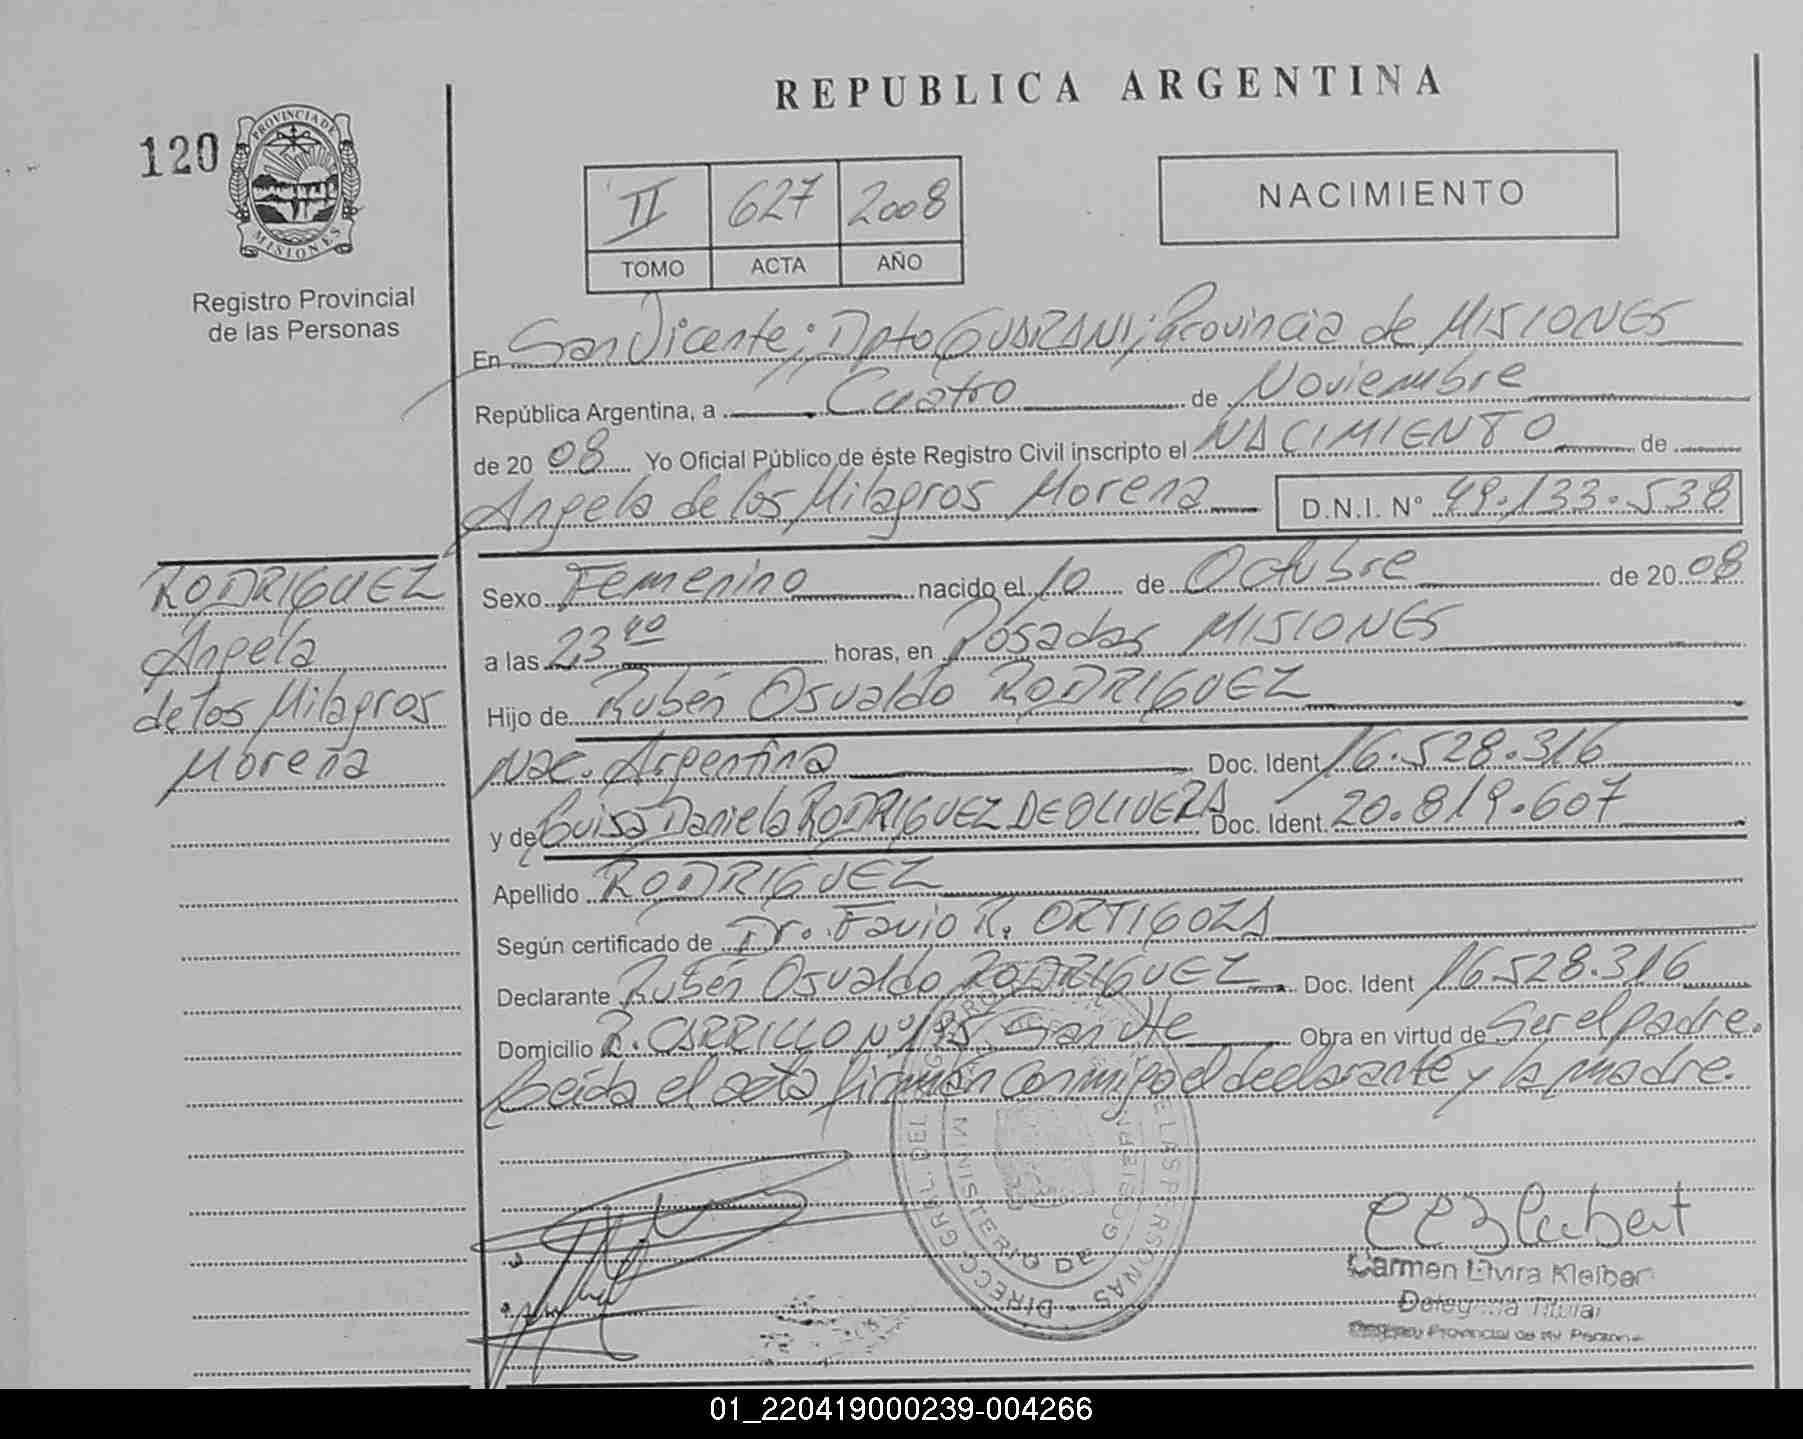 REPUBLICA ARGENTINA
120
PROVINCIA DE
MISIONES
Registro Provincial
de las Personas
II 627 2008
TOMO ACTA AÑO
NACIMIENTO
En San Vicente; Dpto GUARANI; Provincia de MISIONES
República Argentina, a Cuatro de Noviembre
de 20 08 Yo Oficial Público de éste Registro Civil inscripto el NACIMIENTO de
Angela de los Milagros Morena D.N.I. N° 49.133.538
RODRIGUEZ
Angela
de los Milagros
Morena
Sexo Femenino nacido el 10 de Octubre de 20 08
a las 23 40 horas, en Posadas MISIONES
Hijo de Rubén Osvaldo RODRIGUEZ
Nac. Argentina Doc. Ident 16.528.316
y de Luisa Daniela RODRIGUEZ DE OLIVERA Doc. Ident. 20.819.607
Apellido RODRIGUEZ
Según certificado de Dr. Favio R. ORTIGOZA
Declarante Rubén Osvaldo RODRIGUEZ Doc. Ident 16.528.316
Domicilio R. CARRILLO Nº 195 San Vte Obra en virtud de Ser el padre.
Leída el acta firman conmigo el declarante y la madre.
MINISTERIO DE GOBIERNO
DE LAS PERSONAS
DIRECC. GRAL. DEL
Carmen Elvira Kleiber
Delegada Titular
Registro Provincial de las Personas
01_220419000239-004266